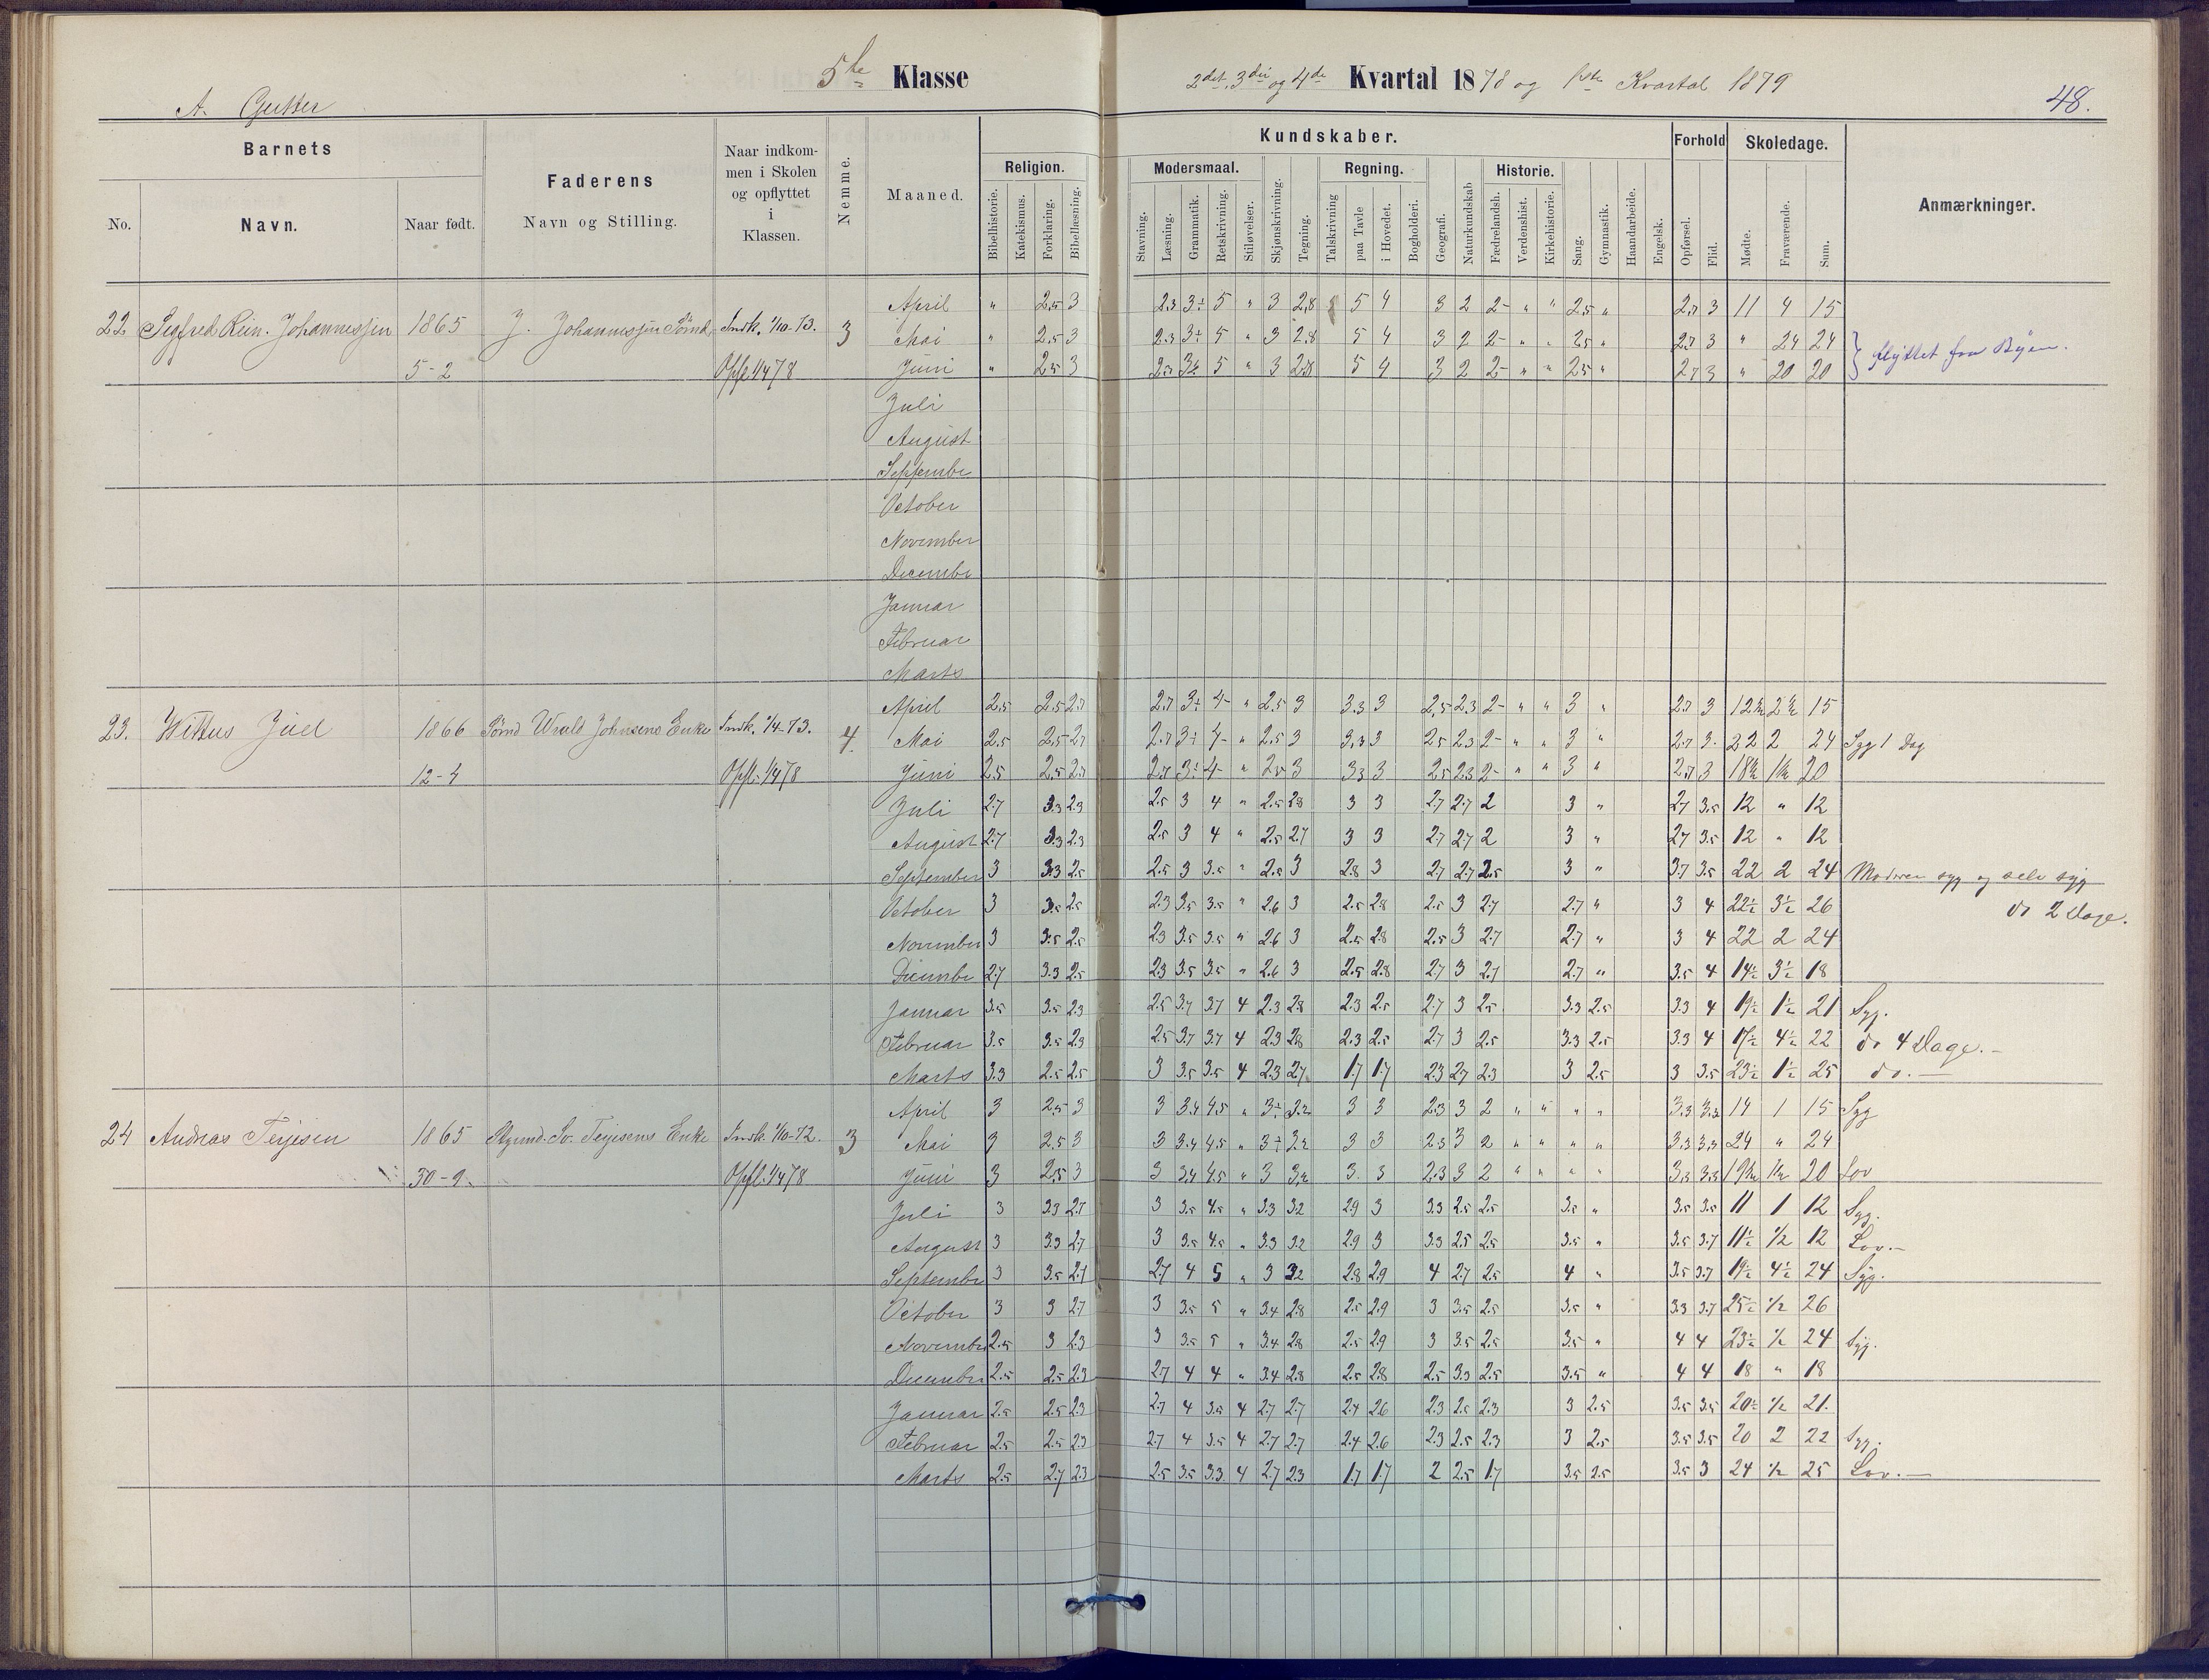 5te Klasse
2det, 3die og 4de Kvartal 1878 og 1ste Kvartal 1879
A. Gutter
48.
Barnets
No.
Navn.
Naar født.
Faderens
Navn og Stilling.
Naar indkom-
men i Skolen
og opflyttet
i
Klassen.
Nemme.
Maaned.
Kundskaber.
Religion.
Bibelhistorie.
Katekismus.
Forklaring.
Bibellæsning.
Modersmaal.
Stavning.
Læsning.
Grammatik.
Retskrivning.
Stiløvelser.
Skjønskrivning.
Tegning.
Regning.
Talskrivning
paa Tavle
i Hovedet.
Bogholderi.
Geografi.
Naturkundskab
Historie.
Fædrelandsh.
Verdenshist.
Kirkehistorie.
Sang.
Gymnastik.
Haandarbeide.
Engelsk.
Forhold
Opførsel.
Flid.
Skoledage.
Mødte.
Fraværende.
Sum.
Anmærkninger.
22 Sigfred Rein. Johannessen 1865 J. Johannessen Tømd. Indk. 1/10-73. 3
5-2 Opfl. 1/4 78
April " 2.5 3 2.3 3÷ 5 " 3 2.8 5 4 3 2 2- " " 2.5 " 2.7 3 11 4 15
Mai " 2.5 3 2.3 3÷ 5 " 3 2.8 5 4 3 2 2- " " 2.5 " 2.7 3 " 24 24
Juni " 2.5 3 2.3 3÷ 5 " 3 2.8 5 4 3 2 2- " " 2.5 " 2.7 3 " 20 20
flyttet fra Byen.
Juli
August
Septembr
October
November
Decembr
Januar
Februar
Marts
23. Wittus Juel 1866 Tømd Wrold Johnsens Enke Indk. 1/4-73. 4.
12-4 Opfl. 1/4 78
April 2.5 2.5 2.7 2.7 3÷ 4- " 2.5 3 3.3 3 2.5 2.3 2- " " 3 " 2.7 3 12½ 2½ 15
Mai 2.5 2.5 2.7 2.7 3÷ 4- " 2.5 3 3.3 3 2.5 2.3 2- " " 3 " 2.7 3. 22 2 24 Syg 1 Dag
Juni 2.5 2.5 2.7 2.7 3÷ 4- " 2.5 3 3.3 3 2.5 2.3 2- " " 3 " 2.7 3 18½ 1½ 20
Juli 2.7 3.3 2.3 2.5 3 4 " 2.5 2.8 3 3 2.7 2.7 2 3 " 2.7 3.5 12 " 12
August 2.7 3.3 2.3 2.5 3 4 " 2.5 2.7 3 3 2.7 2.7 2 3 " 2.7 3.5 12 " 12
September 3 3.3 2.5 2.5 3 3.5 " 2.5 3 2.8 3 2.7 2.7 2.5 3 " 3.7 3.5 22 2 24 Moderen syg og selv syg
October 3 3.5 2.5 2.3 3.5 3.5 " 2.6 3 2.5 2.8 2.5 3 2.7 2.7 " 3 4 22½ 3½ 26 do 2 Dage.
November 3 3.5 2.5 2.3 3.5 3.5 " 2.6 3 2.5 2.8 2.5 3 2.7 2.7 " 3 4 22 2 24
Decembr 2.7 3.3 2.5 2.3 3.5 3.5 " 2.6 3 2.5 2.8 2.7 3 2.7 2.7 " 3.5 4 14½ 3½ 18
Januar 3.5 3.5 2.3 2.5 3.7 3.7 4 2.3 2.8 2.3 2.5 2.7 3 2.5 3.3 2.5 3.3 4 19½ 1½ 21 Syg.
Februar 3.5 3.5 2.3 2.5 3.7 3.7 4 2.3 2.8 2.3 2.5 2.7 3 2.5 3.3 2.5 3.3 4 17½ 4½ 22 do 4 Dage.-
Marts 3.3 2.5 2.5 3 3.5 3.5 4 2.3 2.7 1.7 1.7 2.3 2.7 2.3 3 2.5 3 3.5 23½ 1½ 25 do.-
24 Andreas Terjesen 1865 Styrmd. Sv. Terjesens Enke Indk. 1/10-72. 3
30-9. Opfl. 1/4 78
April 3 2.5 3 3 3.4 4.5 " 3÷ 3.2 3 3 2.3 3 2 " " " " 3.3 3.3 14 1 15 Syg
Mai 3 2.5 3 3 3.4 4.5 " 3÷ 3.2 3 3 2.3 3 2 " " " " 3.3 3.3 24 " 24
Juni 3 2.5 3 3 3.4 4.5 " 3 3.2 3. 3 2.3 3 2 " " " " 3.3 3.3 19½ 1½ 20 Lov
Juli 3 3.3 2.7 3 3.5 4.5 " 3.3 3.2 2.9 3 3.3 2.5 2.5 3.5 " 3.5 3.5 11 1 12 Syg.
August 3 3.3 2.7 3 3.5 4.5 " 3.3 3.2 2.9 3 3.3 2.5 2.5 3.5 " 3.5 3.7 11½ ½ 12 Lov.-
Septembr 3 3.5 2.7 2.7 4 5 " 3 3.2 2.8 2.9 4 2.7 2.5 4 " 3.5 3.7 19½ 4½ 24 Syg.
October 3 3 2.7 3 3.5 5 " 3.4 2.8 2.5 2.9 3 3.5 2.5 3.5 " 3.3 3.7 25½ ½ 26
Novembr 2.5 3 2.3 3 3.5 5 " 3.4 2.8 2.5 2.9 3 3.5 2.5 3.5 " 4 4 23½ ½ 24 Syg.
December 2.5 2.5 2.3 2.7 4 4 " 3.4 2.8 2.5 2.8 2.5 3.3 2.5 3.5 " 4 4 18 " 18
Januar 2.5 2.5 2.3 2.7 4 3.5 4 2.7 2.7 2.4 2.6 2.3 2.5 2.3 3 2.5 3.5 3.5 20½ ½ 21.
Februar 2.5 2.5 2.3 2.7 4 3.5 4 2.7 2.7 2.4 2.6 2.3 2.5 2.3 3 2.5 3.5 3.5 20 2 22 Syg.
Marts 2.5 2.7 2.3 2.5 3.5 3.3 4 2.7 2.3 1.7 1.7 2 2.5 1.7 3.5 2.5 3.5 3 24 ½ 25 Lov.-